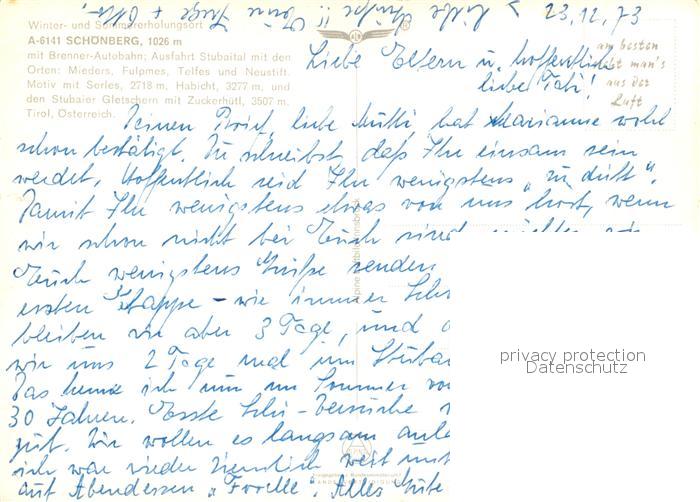 Winter- und Sommererholungsort
A-6141 SCHÖNBERG, 1026 m
mit Brenner-Autobahn; Ausfahrt Stubaital mit den
Orten: Mieders, Fulpmes, Telfes und Neustift.
Motiv mit Serles, 2718 m, Habicht, 3277 m, und
den Stubaier Gletschern mit Zuckerhütl, 3507 m.
Tirol, Österreich.
23.12.73
am besten
geht man's
aus der
Luft
Liebe Eltern u. hoffentlich
liebe Tati!
Deinen Brief, liebe Mutti, hat Marianne wohl
schon bestätigt. Du schreibst, daß Ihr einsam sein
werdet. Hoffentlich seid Ihr wenigstens „zu dritt".
Damit Ihr wenigstens etwas von uns hört, wenn
wir schon nicht bei Euch sind, möchten wir
Euch wenigstens Grüße senden
ersten Etappe – wie immer
bleiben wir aber 3 Tage, und
wir uns 2 Tage mal im Stubai
Das kenne ich nur im Sommer vor
30 Jahren. Erste Ski-Versuche
gut. Wir wollen es langsam
ich war wieder ziemlich weit
auf Abendessen „Forelle". Alles Gute
Liebe Grüße!! Inge +
privacy protection
Datenschutz